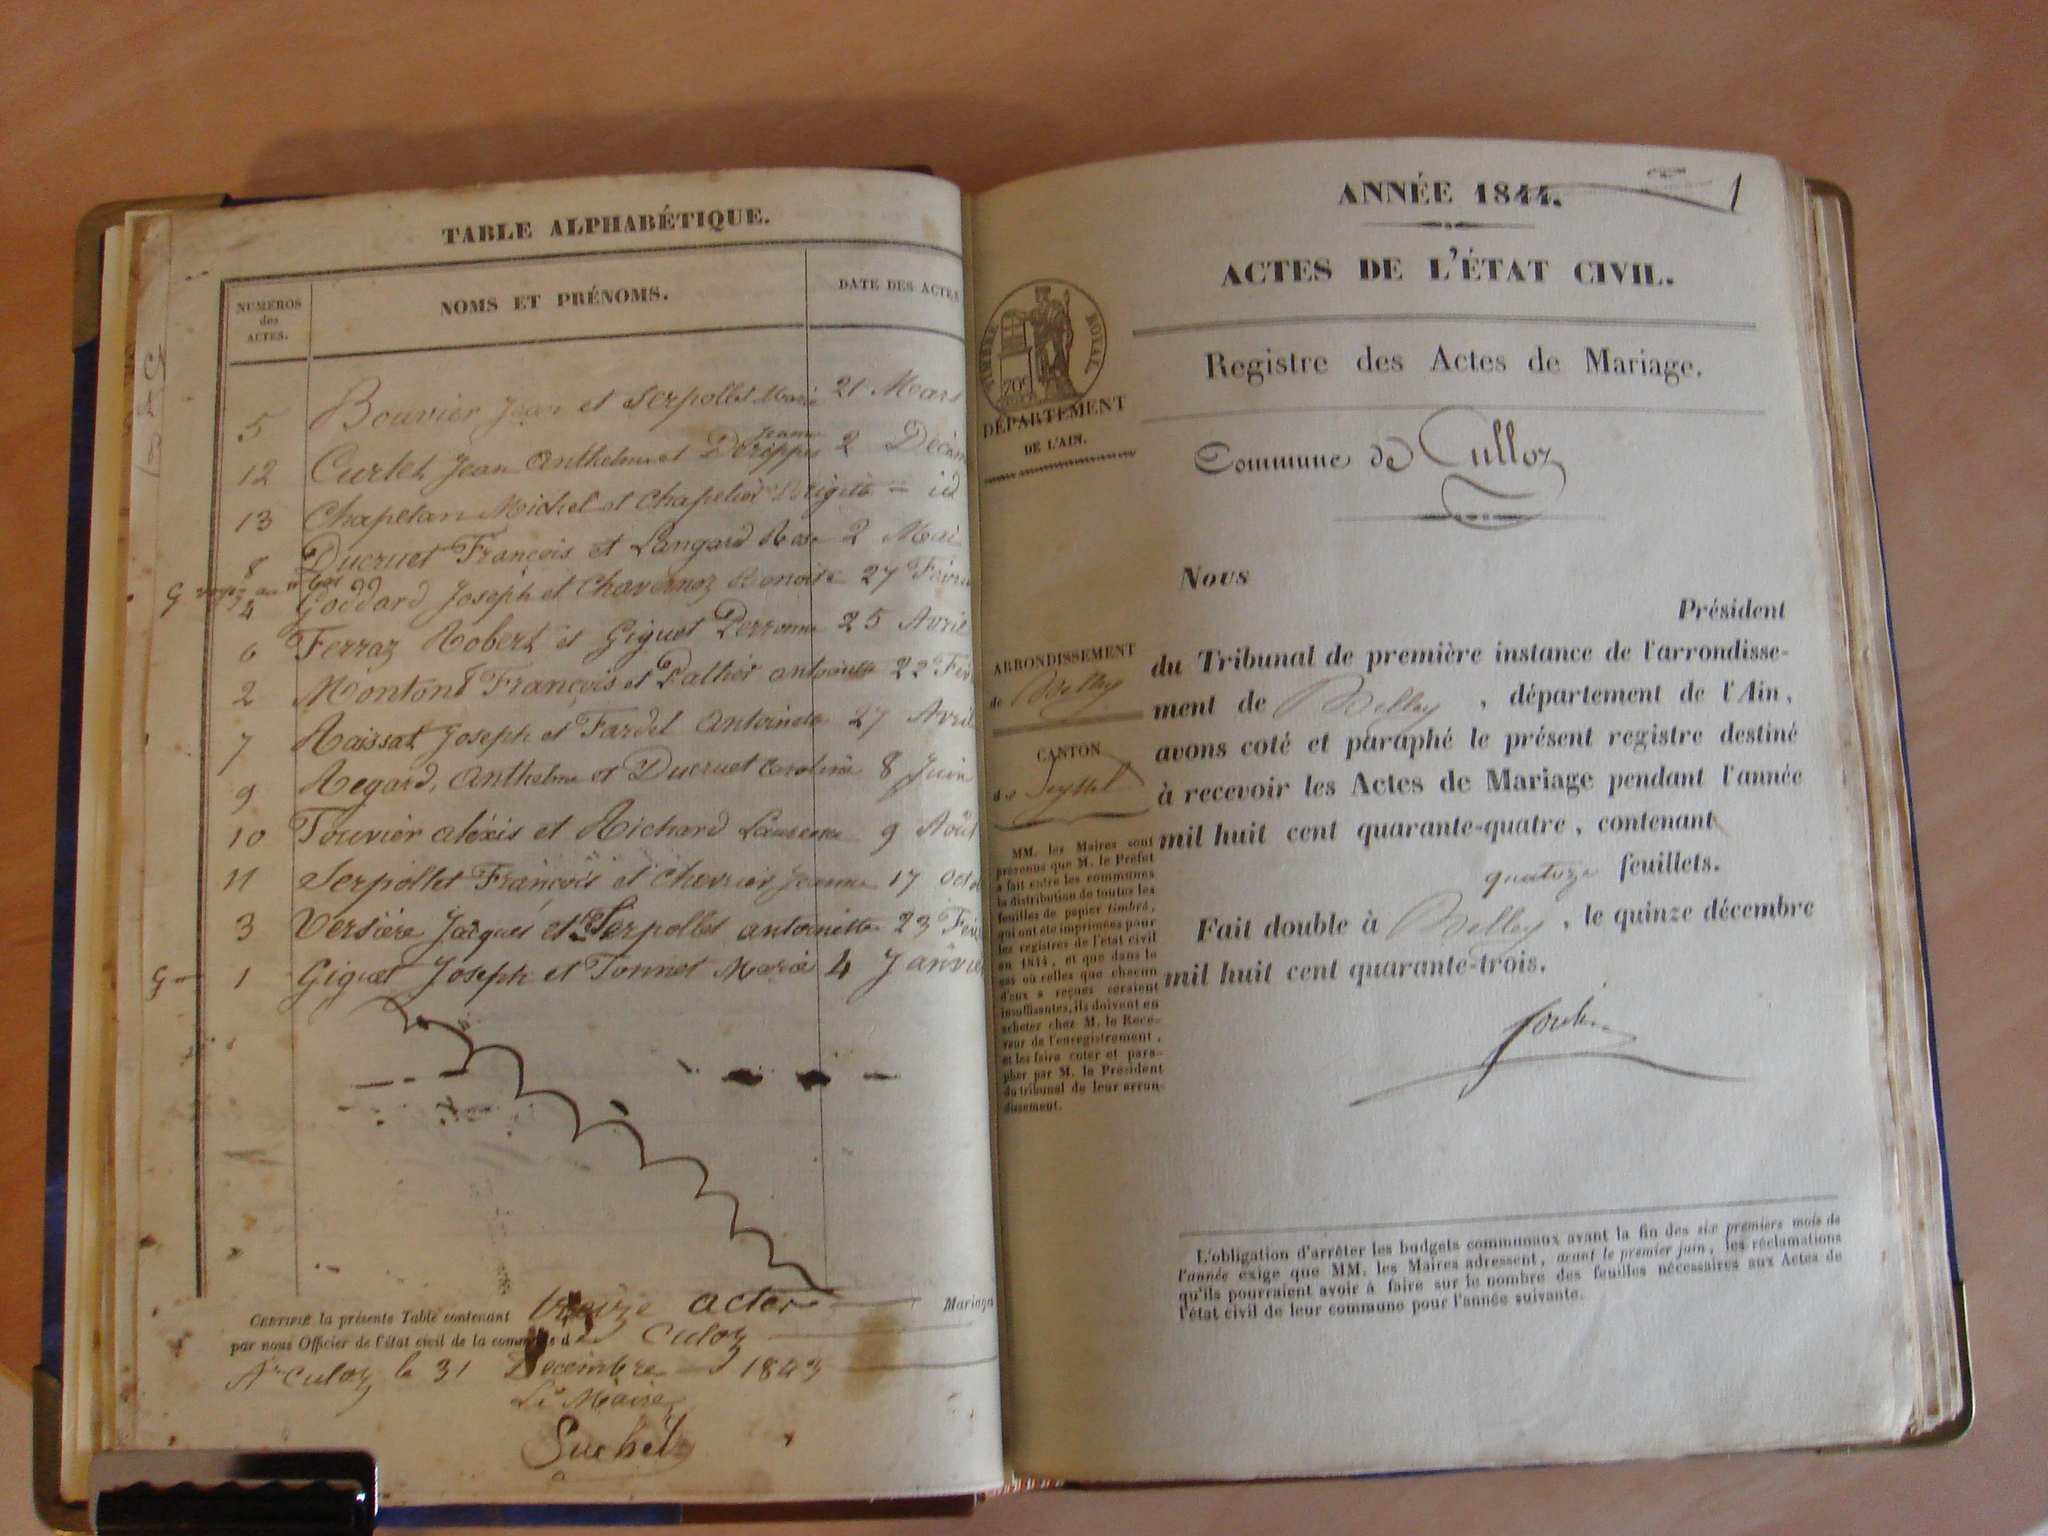 TABLE ALPHABÉTIQUE.
NUMÉROS
des
ACTES.
NOMS ET PRÉNOMS.
DATE DES ACTES
5 Bouvier Jean et Serpollet Marie 21 Mars
12 Curtet Jean Anthelme et Jeanne 2 Décem
13 Chapelan Michel et Chapelier Brigitte = id
8 Ducruet François et Langard Rose 2 Mai
G voyez au n° bas
4 Goddard Joseph et Chavornoz Benoite 27 Févri
6 Ferraz Robert et Giguet Perronne 25 Avril
2 Montont François et Pallier antoinette 22 Fév
7 Raissat Joseph et Fardel Antoinette 27 Avril
9 Regard, Anthelme et Ducruet Caroline 8 Juin
10 Touvier aléxis et Richard Laurence 9 Août
11 Serpollet François et Chevrier Jeanne 17 Octo
3 Versière Jacques et Serpollet antoinette 23 Févr
G 1 Giguet Joseph et Tonnet Marie 4 Janvier
CERTIFIÉ la présente Table contenant treize actes Mariage
par nous Officier de l'état civil de la commune de Culoz
A Culoz le 31 Décembre 1843
Le Maire
Suchet
1
ANNÉE 1844.
ACTES DE L'ÉTAT CIVIL.
TIMBRE ROYAL
70c
Registre des Actes de Mariage.
DÉPARTEMENT
DE L'AIN.
Commune de Culloz
Nous
Président
du Tribunal de première instance de l'arrondisse-
ment de Belley, département de l'Ain,
avons coté et paraphé le présent registre destiné
à recevoir les Actes de Mariage pendant l'année
mil huit cent quarante-quatre, contenant
quatorze feuillets.
Fait double à Belley, le quinze décembre
mil huit cent quarante-trois.
ARRONDISSEMENT
de Belley
CANTON
de Seyssel
MM. les Maires sont
prévenus que M. le Préfet
a fait entre les communes
la distribution de toutes les
feuilles de papier timbré,
qui ont été imprimées pour
les registres de l'état civil
en 1844, et que dans le
cas où celles que chacun
d'eux a reçues seraient
insuffisantes, ils doivent en
acheter chez M. le Rece-
veur de l'enregistrement,
et les faire coter et para-
pher par M. le Président
du tribunal de leur arron-
dissement.
L'obligation d'arrêter les budgets communaux avant la fin des six premiers mois de
l'année exige que MM. les Maires adressent, avant le premier juin, les réclamations
qu'ils pourraient avoir à faire sur le nombre des feuilles nécessaires aux Actes de
l'état civil de leur commune pour l'année suivante.